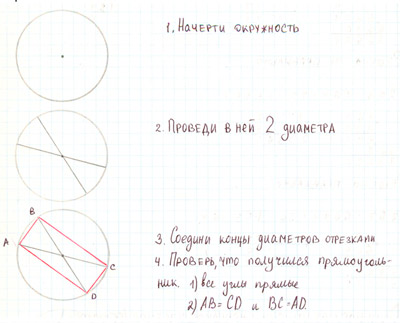 1. Начерти окружность
2. Проведи в ней 2 диаметра
B
A
C
D
3. Соедини концы диаметров отрезками
4. Проверь, что получился прямоуголь-
ник. 1) все углы прямые
2) AB=CD и BC=AD.